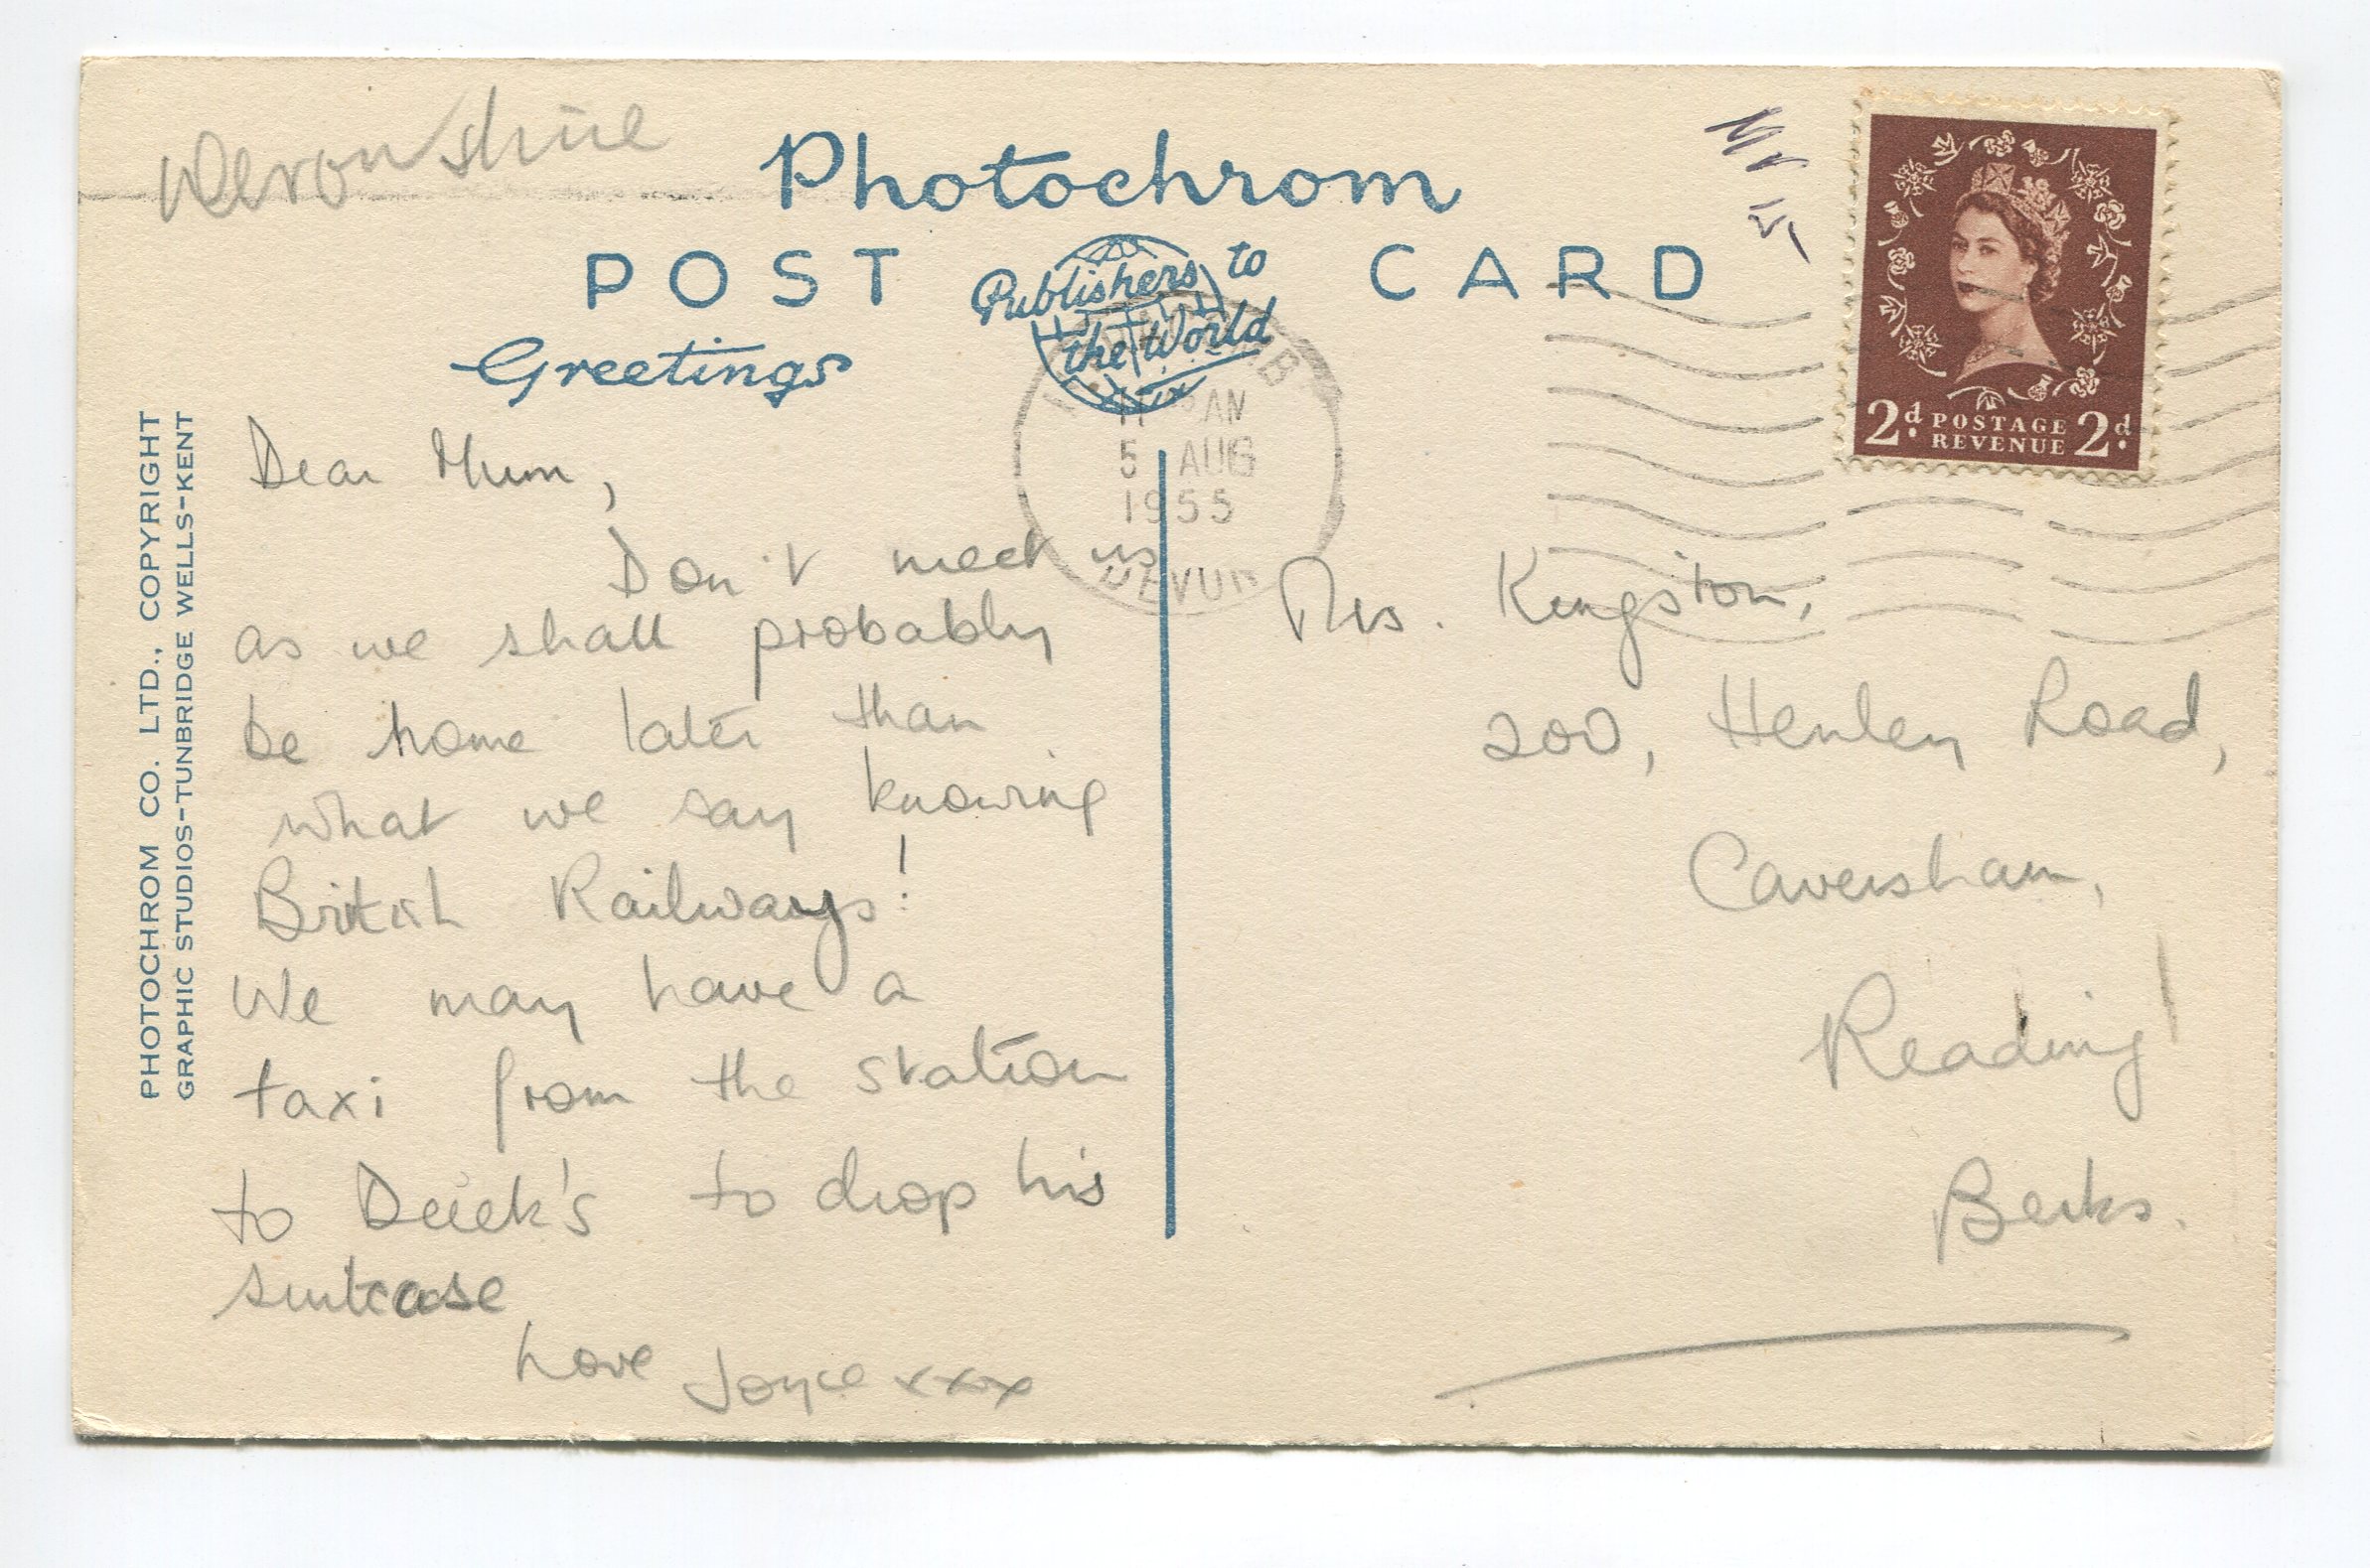 Devonshire
Photochrom
POST CARD
Publishers to
the World
Greetings
11 AM
5 AUG
1955
2d. POSTAGE 2d.
REVENUE
PHOTOCHROM CO. LTD., COPYRIGHT
GRAPHIC STUDIOS-TUNBRIDGE WELLS-KENT
Dear Mum,
Don't meet us
as we shall probably
be home later than
what we say knowing
British Railways!
We may have a
taxi from the station
to Derek's to drop his
suitcase
Love Joyce xxx
Mrs. Kingston,
200, Henley Road,
Caversham,
Reading
Berks.